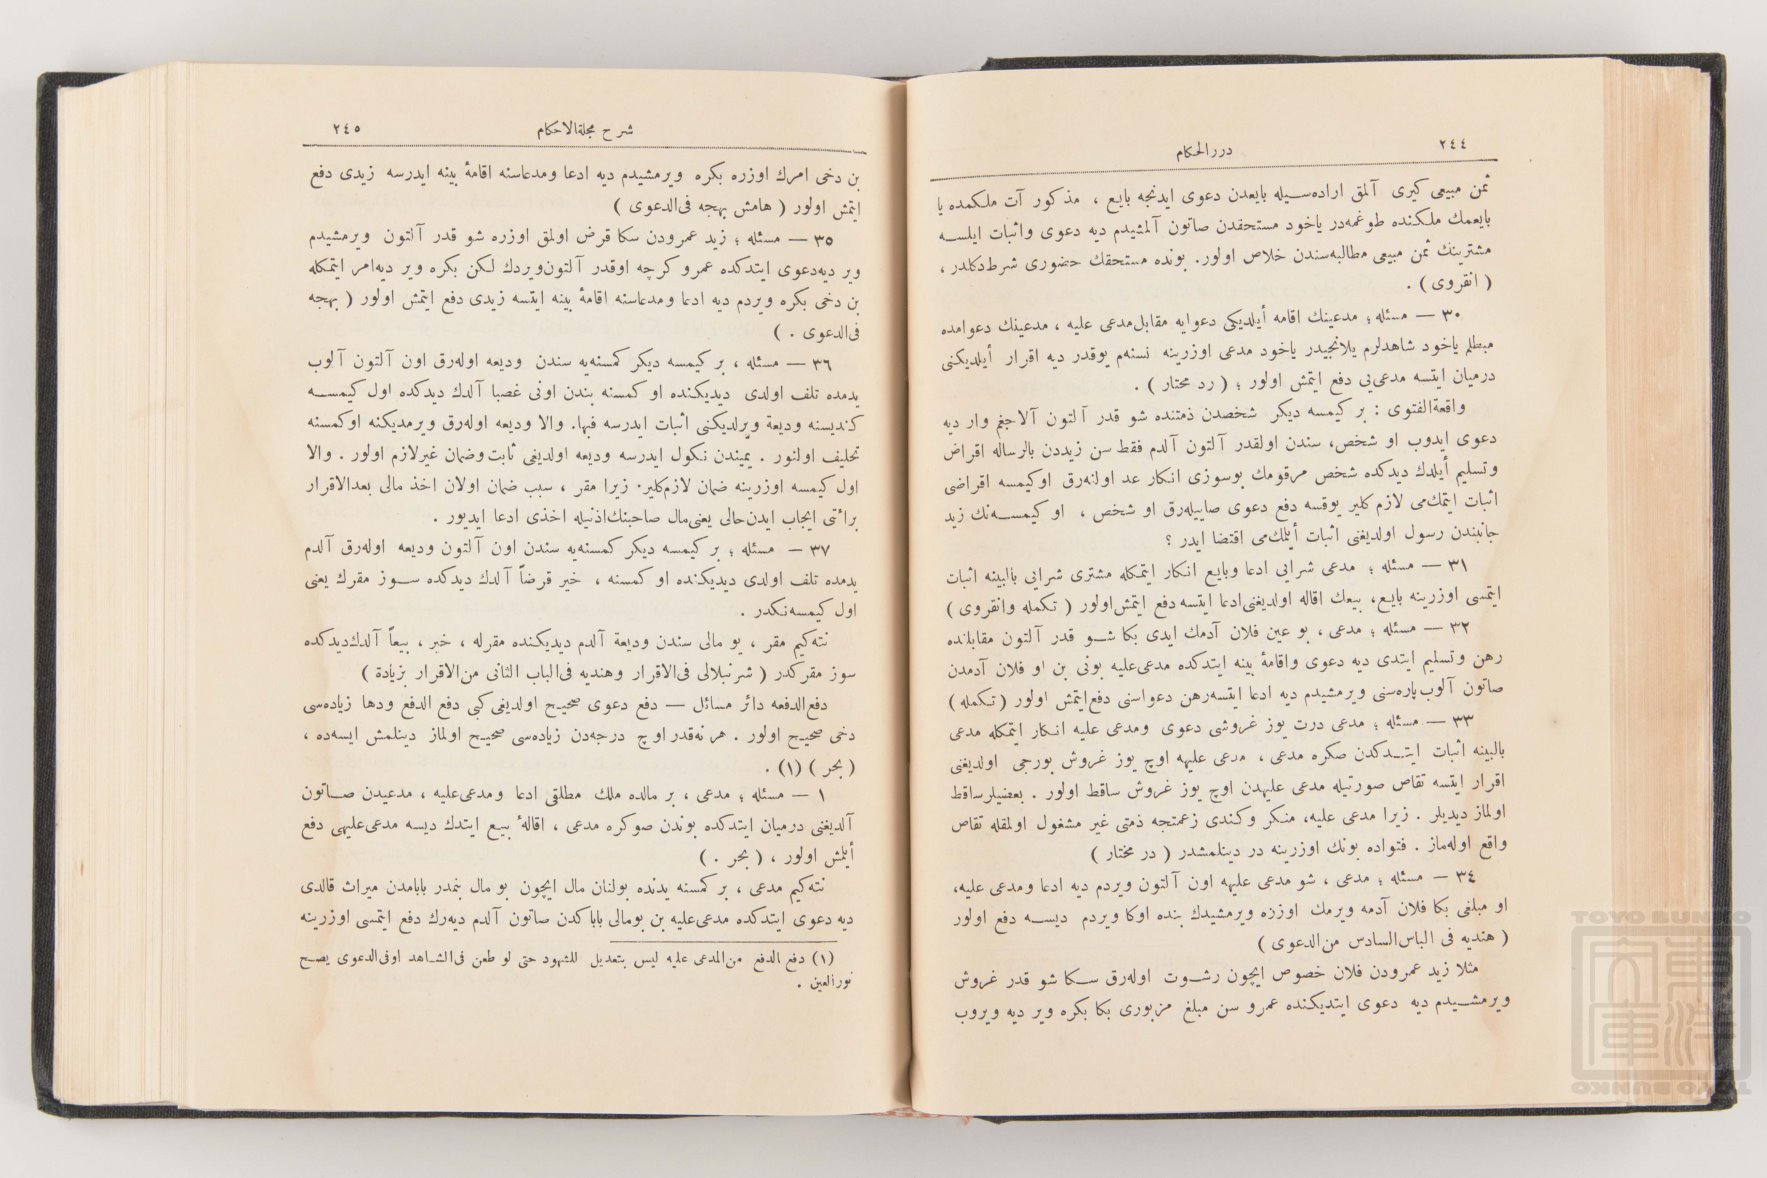 ٢٤٤
درر الحكام
ثمن مبيعى كيرى آلمق اراده‌سيله بايعدن دعوى ايدنجه بايع ، مذكور آت ملكمده يا
بايعمك ملكنده طوغمه‌در ياخود مستحقدن صاتون آلمشيدم ديه دعوى واثبات ايلسه
مشترينك ثمن مبيعى مطالبه‌سندن خلاص اولور. بونده مستحقك حضورى شرط دكلدر ،
( انقروى ) .
٣٠ — مسئله ؛ مدعينك اقامه أيلديكى دعوايه مقابل مدعى عليه ، مدعينك دعوامده
مبطلم ياخود شاهدلرم يلانجيدر ياخود مدعى اوزرينه نسنه‌م يوقدر ديه اقرار أيلديكنى
درميان ايتسه مدعى‌يى دفع ايتمش اولور ؛ ( رد محتار ) .
واقعة‌الفتوى : بر كيمسه ديكر شخصدن ذمتنده شو قدر آلتون آلاجغم وار ديه
دعوى ايدوب او شخص، سندن اولقدر آلتون آلدم فقط سن زيددن بالرساله اقراض
وتسليم أيلدك ديدكده شخص مرقومك بوسوزى انكار عد اولنه‌رق اوكيمسه اقراضى
اثبات ايتمك‌مى لازم كلير يوقسه دفع دعوى صاييله‌رق او شخص ، او كيمسه‌نك زيد
جانبندن رسول اولديغنى اثبات أيلمك‌مى اقتضا ايدر ؟
٣١ — مسئله ؛ مدعى شرايى ادعا وبايع انكار ايتمكله مشترى شرايى بالبينه اثبات
ايتمسى اوزرينه بايع، بيعك اقاله اولديغنى ادعا ايتسه دفع ايتمش اولور ( تكمله وانقروى )
٣٢ — مسئله ؛ مدعى ، بو عين فلان آدمك ايدى بكا شو قدر آلتون مقابلنده
رهن وتسليم ايتدى ديه دعوى واقامهٔ بينه ايتدكده مدعى‌عليه بونى بن او فلان آدمدن
صاتون آلوب پاره‌سنى ويرمشيدم ديه ادعا ايتسه رهن دعواسنى دفع ايتمش اولور ( تكمله )
٣٣ — مسئله ؛ مدعى درت يوز غروشى دعوى ومدعى عليه انكار ايتمكله مدعى
بالبينه اثبات ايتدكدن صكره مدعى ، مدعى عليهه اوچ يوز غروش بورجى اولديغنى
اقرار ايتسه تقاص صورتيله مدعى عليهدن اوچ يوز غروش ساقط اولور . بعضيلر ساقط
اولماز ديديلر . زيرا مدعى عليه، منكر وكندى زعمنجه ذمتى غير مشغول اولمقله تقاص
واقع اوله‌ماز . فتواده بونك اوزرينه در دينلمشدر ( در مختار )
٣٤ — مسئله ؛ مدعى ، شو مدعى عليهه اون آلتون ويردم ديه ادعا ومدعى عليه،
او مبلغى بكا فلان آدمه ويرمك اوزره ويرمشيدك بنده اوكا ويردم ديسه دفع اولور
( هنديه فى الباس السادس من‌الدعوى )
مثلا زيد عمرودن فلان خصوص ايچون رشوت اوله‌رق سكا شو قدر غروش
ويرمشيدم ديه دعوى ايتديكنده عمرو سن مبلغ مزبورى بكا بكره وير ديه ويروب
شرح مجلة‌الاحكام
٢٤٥
بن دخى امرك اوزره بكره ويرمشيدم ديه ادعا ومدعاسنه اقامهٔ بينه ايدرسه زيدى دفع
ايتمش اولور ( هامش بهجه فى‌الدعوى )
٣٥ — مسئله ؛ زيد عمرودن سكا قرض اولمق اوزره شو قدر آلتون ويرمشيدم
وير ديه‌دعوى ايتدكده عمرو كرچه اوقدر آلتون‌ويردك لكن بكره وير ديه‌امر ايتمكله
بن دخى بكره ويردم ديه ادعا ومدعاسنه اقامهٔ بينه ايتسه زيدى دفع ايتمش اولور ( بهجه
فى‌الدعوى . )
٣٦ — مسئله ، بر كيمسه ديكر كمسنه‌يه سندن وديعه اوله‌رق اون آلتون آلوب
يدمده تلف اولدى ديديكنده او كمسنه بندن اونى غصبا آلدك ديدكده اول كيمسه
كنديسنه وديعة ويرلديكنى اثبات ايدرسه فبها. والا وديعه اوله‌رق ويرمديكنه اوكمسنه
تحليف اولنور . يميندن نكول ايدرسه وديعه اولديغى ثابت وضمان غيرلازم اولور . والا
اول كيمسه اوزرينه ضمان لازم‌كلير. زيرا مقر ، سبب ضمان اولان اخذ مالى بعدالاقرار
برائتى ايجاب ايدن‌حالى يعنى‌مال صاحبنك‌اذنيله اخذى ادعا ايديور .
٣٧ — مسئله ؛ بر كيمسه ديكر كمسنه‌يه سندن اون آلتون وديعه اوله‌رق آلدم
يدمده تلف اولدى ديديكنده او كمسنه ، خير قرضاً آلدك ديدكده سوز مقرك يعنى
اول كيمسه‌نكدر .
نته‌كيم مقر ، بو مالى سندن وديعة آلدم ديديكنده مقرله ، خير ، بيعاً آلدك‌ديدكده
سوز مقركدر ( شرنبلالى فى‌الاقرار وهنديه فى‌الباب الثانى من‌الاقرار بزيادة )
دفع‌الدفعه دائر مسائل — دفع دعوى صحيح اولديغى كبى دفع الدفع ودها زياده‌سى
دخى صحيح اولور . هر نه‌قدر اوچ درجه‌دن زياده‌سى صحيح اولماز دينلمش ايسه‌ده ،
( بحر ) (١) .
١ — مسئله ؛ مدعى ، بر مالده ملك مطلقى ادعا ومدعى‌عليه ، مدعيدن صاتون
آلديغنى درميان ايتدكده بوندن صوكره مدعى ، اقالهٔ بيع ايتدك ديسه مدعى‌عليهى دفع
أيلمش اولور ، ( بحر . )
نته‌كيم مدعى ، بر كمسنه يدنده بولنان مال ايچون بو مال بنمدر بابامدن ميراث قالدى
ديه دعوى ايتدكده مدعى‌عليه بن بومالى باباكدن صاتون آلدم ديه‌رك دفع ايتمسى اوزرينه
(١) دفع الدفع من‌المدعى عليه ليس بتعديل للشهود حتى لو طعن فى‌الشاهد اوفى‌الدعوى يصح
نورالعين .
TOYO BUNKO
東洋文庫
TOYO BUNKO